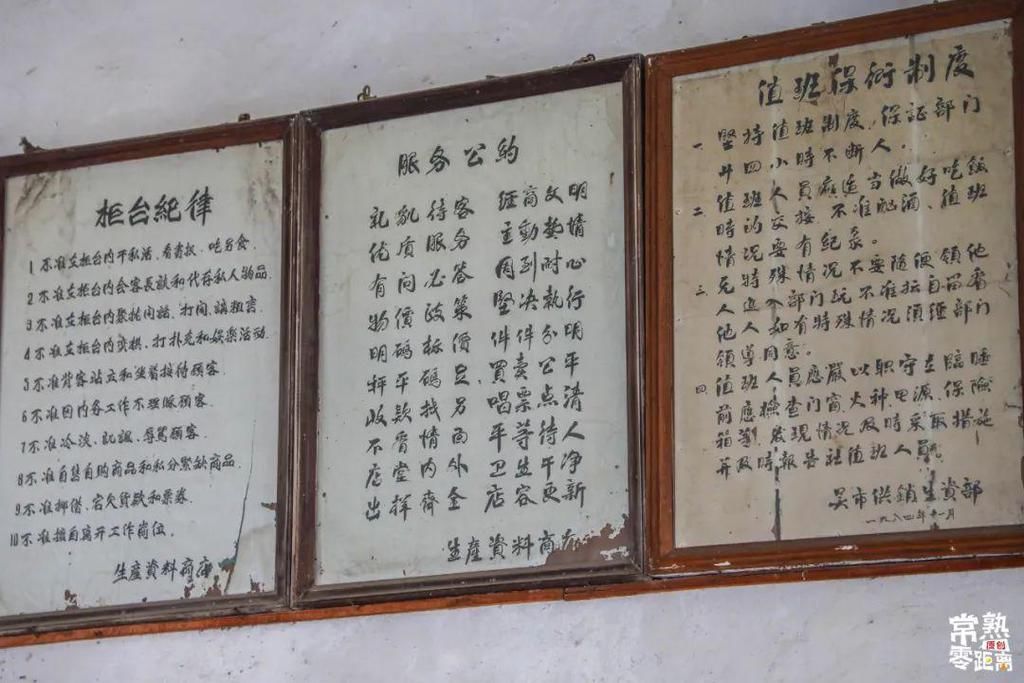 柜台紀律
1 不准在柜台内干私活、看書报、吃另食.
2 不准在柜台内会客長談和代存私人物品.
3 不准在柜台内聚扰闲話、打闹、講粗言.
4 不准在柜台内奕棋、打扑克和娱楽活动.
5 不准背客站立和坐着接待顾客.
6 不准因内务工作不理睬顾客.
7 不准冷淡、讥諷、辱罵顾客.
8 不准自售自购商品和私分緊缺商品.
9 不准挪借、宕欠貨款和票券.
10 不准擅自离开工作岗位.
生産資料商店
服务公約
礼貌待客 经商文明
优质服务 主動熱情
有问必答 周到耐心
物價政策 堅决執行
明碼标價 件件分明
秤平碼足 買卖公平
收款找另 唱票点清
不看情面 平等待人
店堂内外 卫生干净
出样齊全 店容更新
生產資料商店
值班保衛制度
一、堅持值班制度,保証部门
廿四小時不断人。
二、值班人員應适当做好吃飯
時的交接,不准酗酒、值班
情况要有紀录。
三、无特殊情况不要随便領他
人进入部门玩不准擅自留宿
他人如有特殊情况須经部门
領導同意。
四、值班人員應嚴以职守在臨睡
前應檢查门窗火种、电源、保險
箱等,发現情况及時采取措施
并及時報告社值班人員。
吴市供銷生資部
一九八四年十一月
常熟
原创
零距离